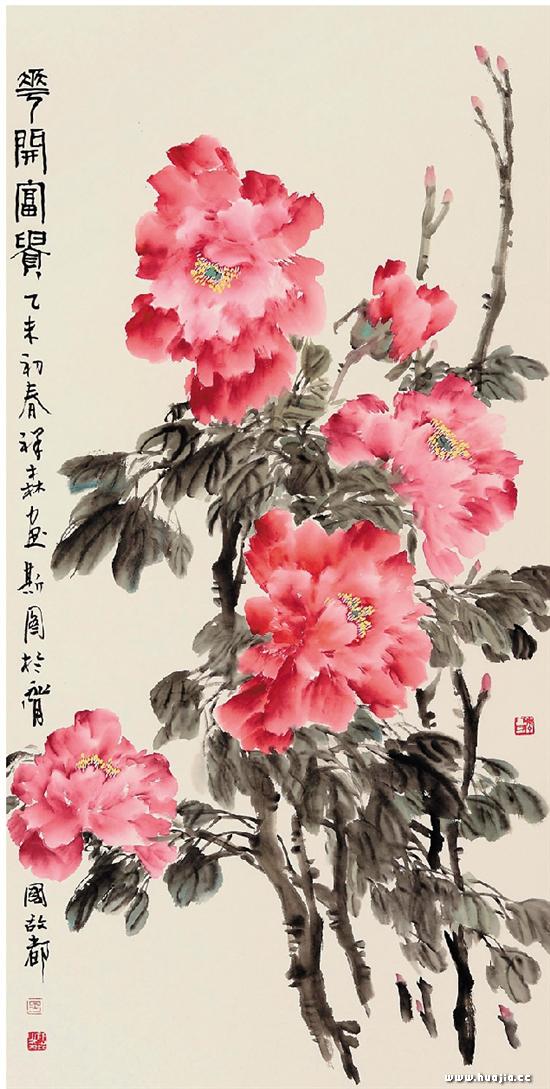 華開富貴
乙未初春祥森画斯圖於齊
國故都
www.huajia.cc